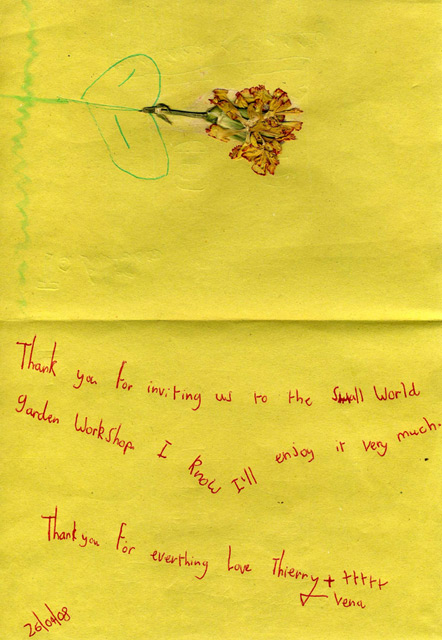 Thank you for inviting us to the Small World
garden Workshop. I know I'll enjoy it very much.
Thankyou for everthing Love Thierry + +++++
Vena
26/04/08